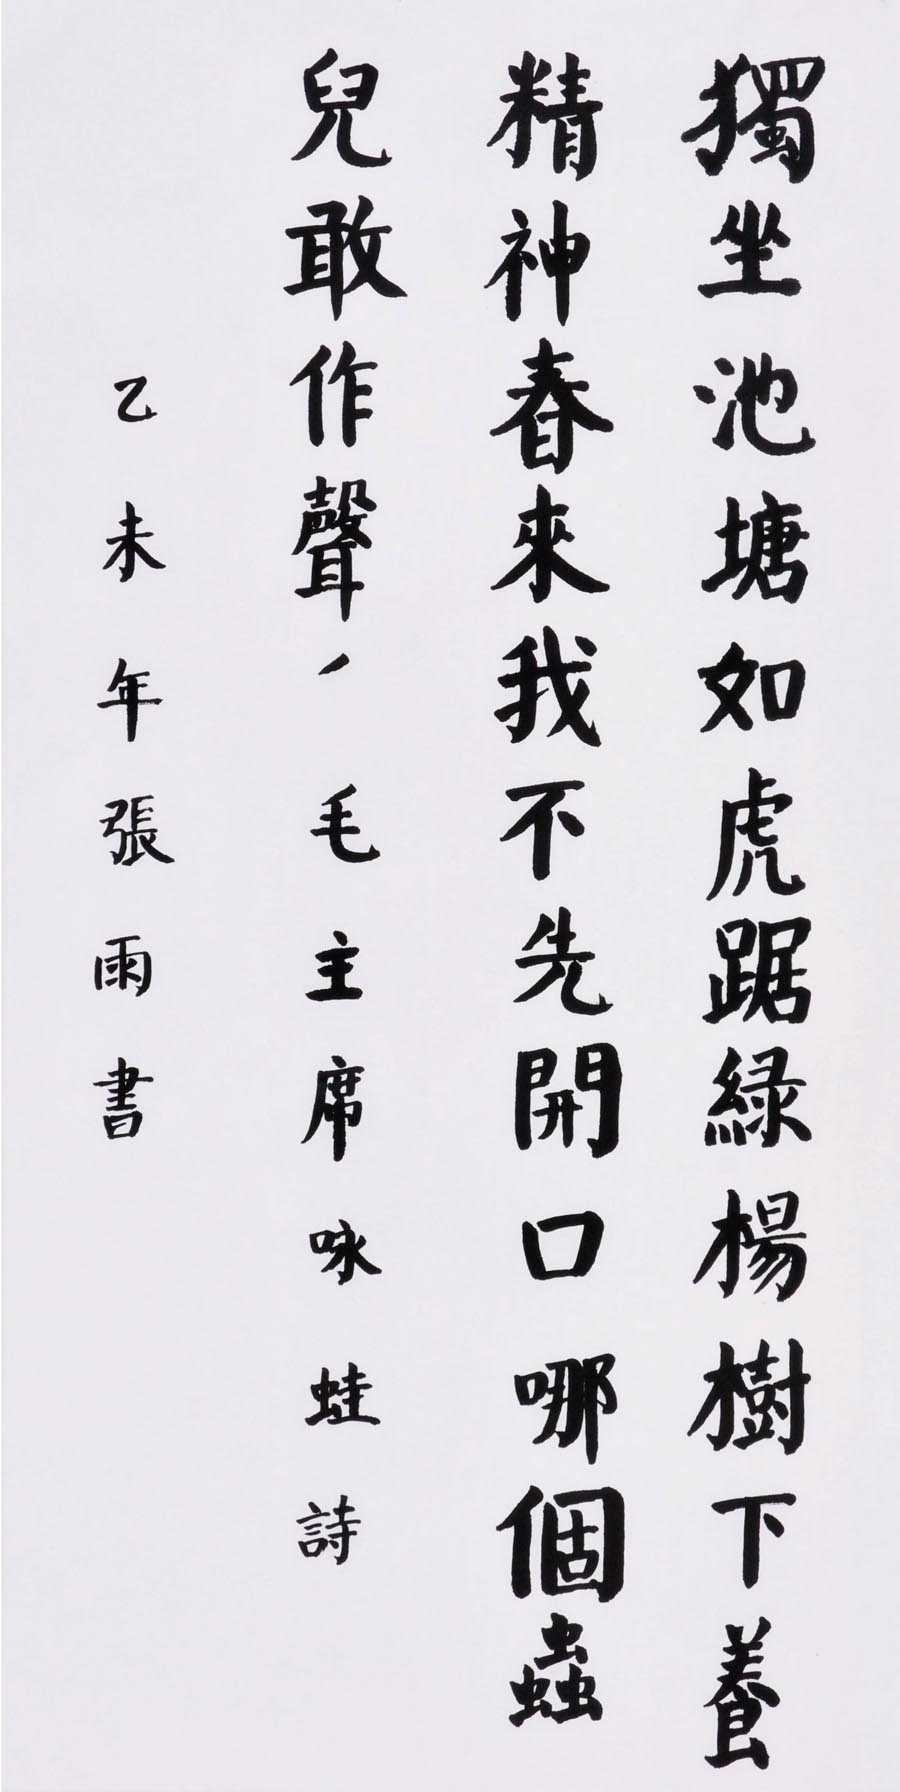 獨坐池塘如虎踞緑楊樹下養
精神春來我不先開口哪個蟲
兒敢作聲、毛主席咏蛙詩
乙未年張雨書